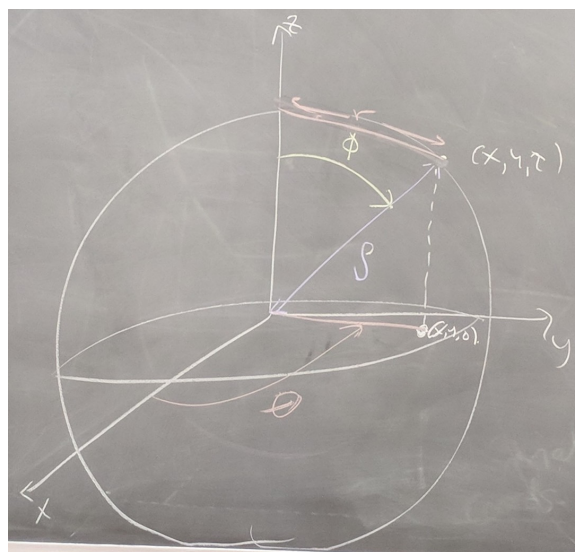 z
r
φ
(x, y, z)
ρ
(x, y, 0)
y
θ
x